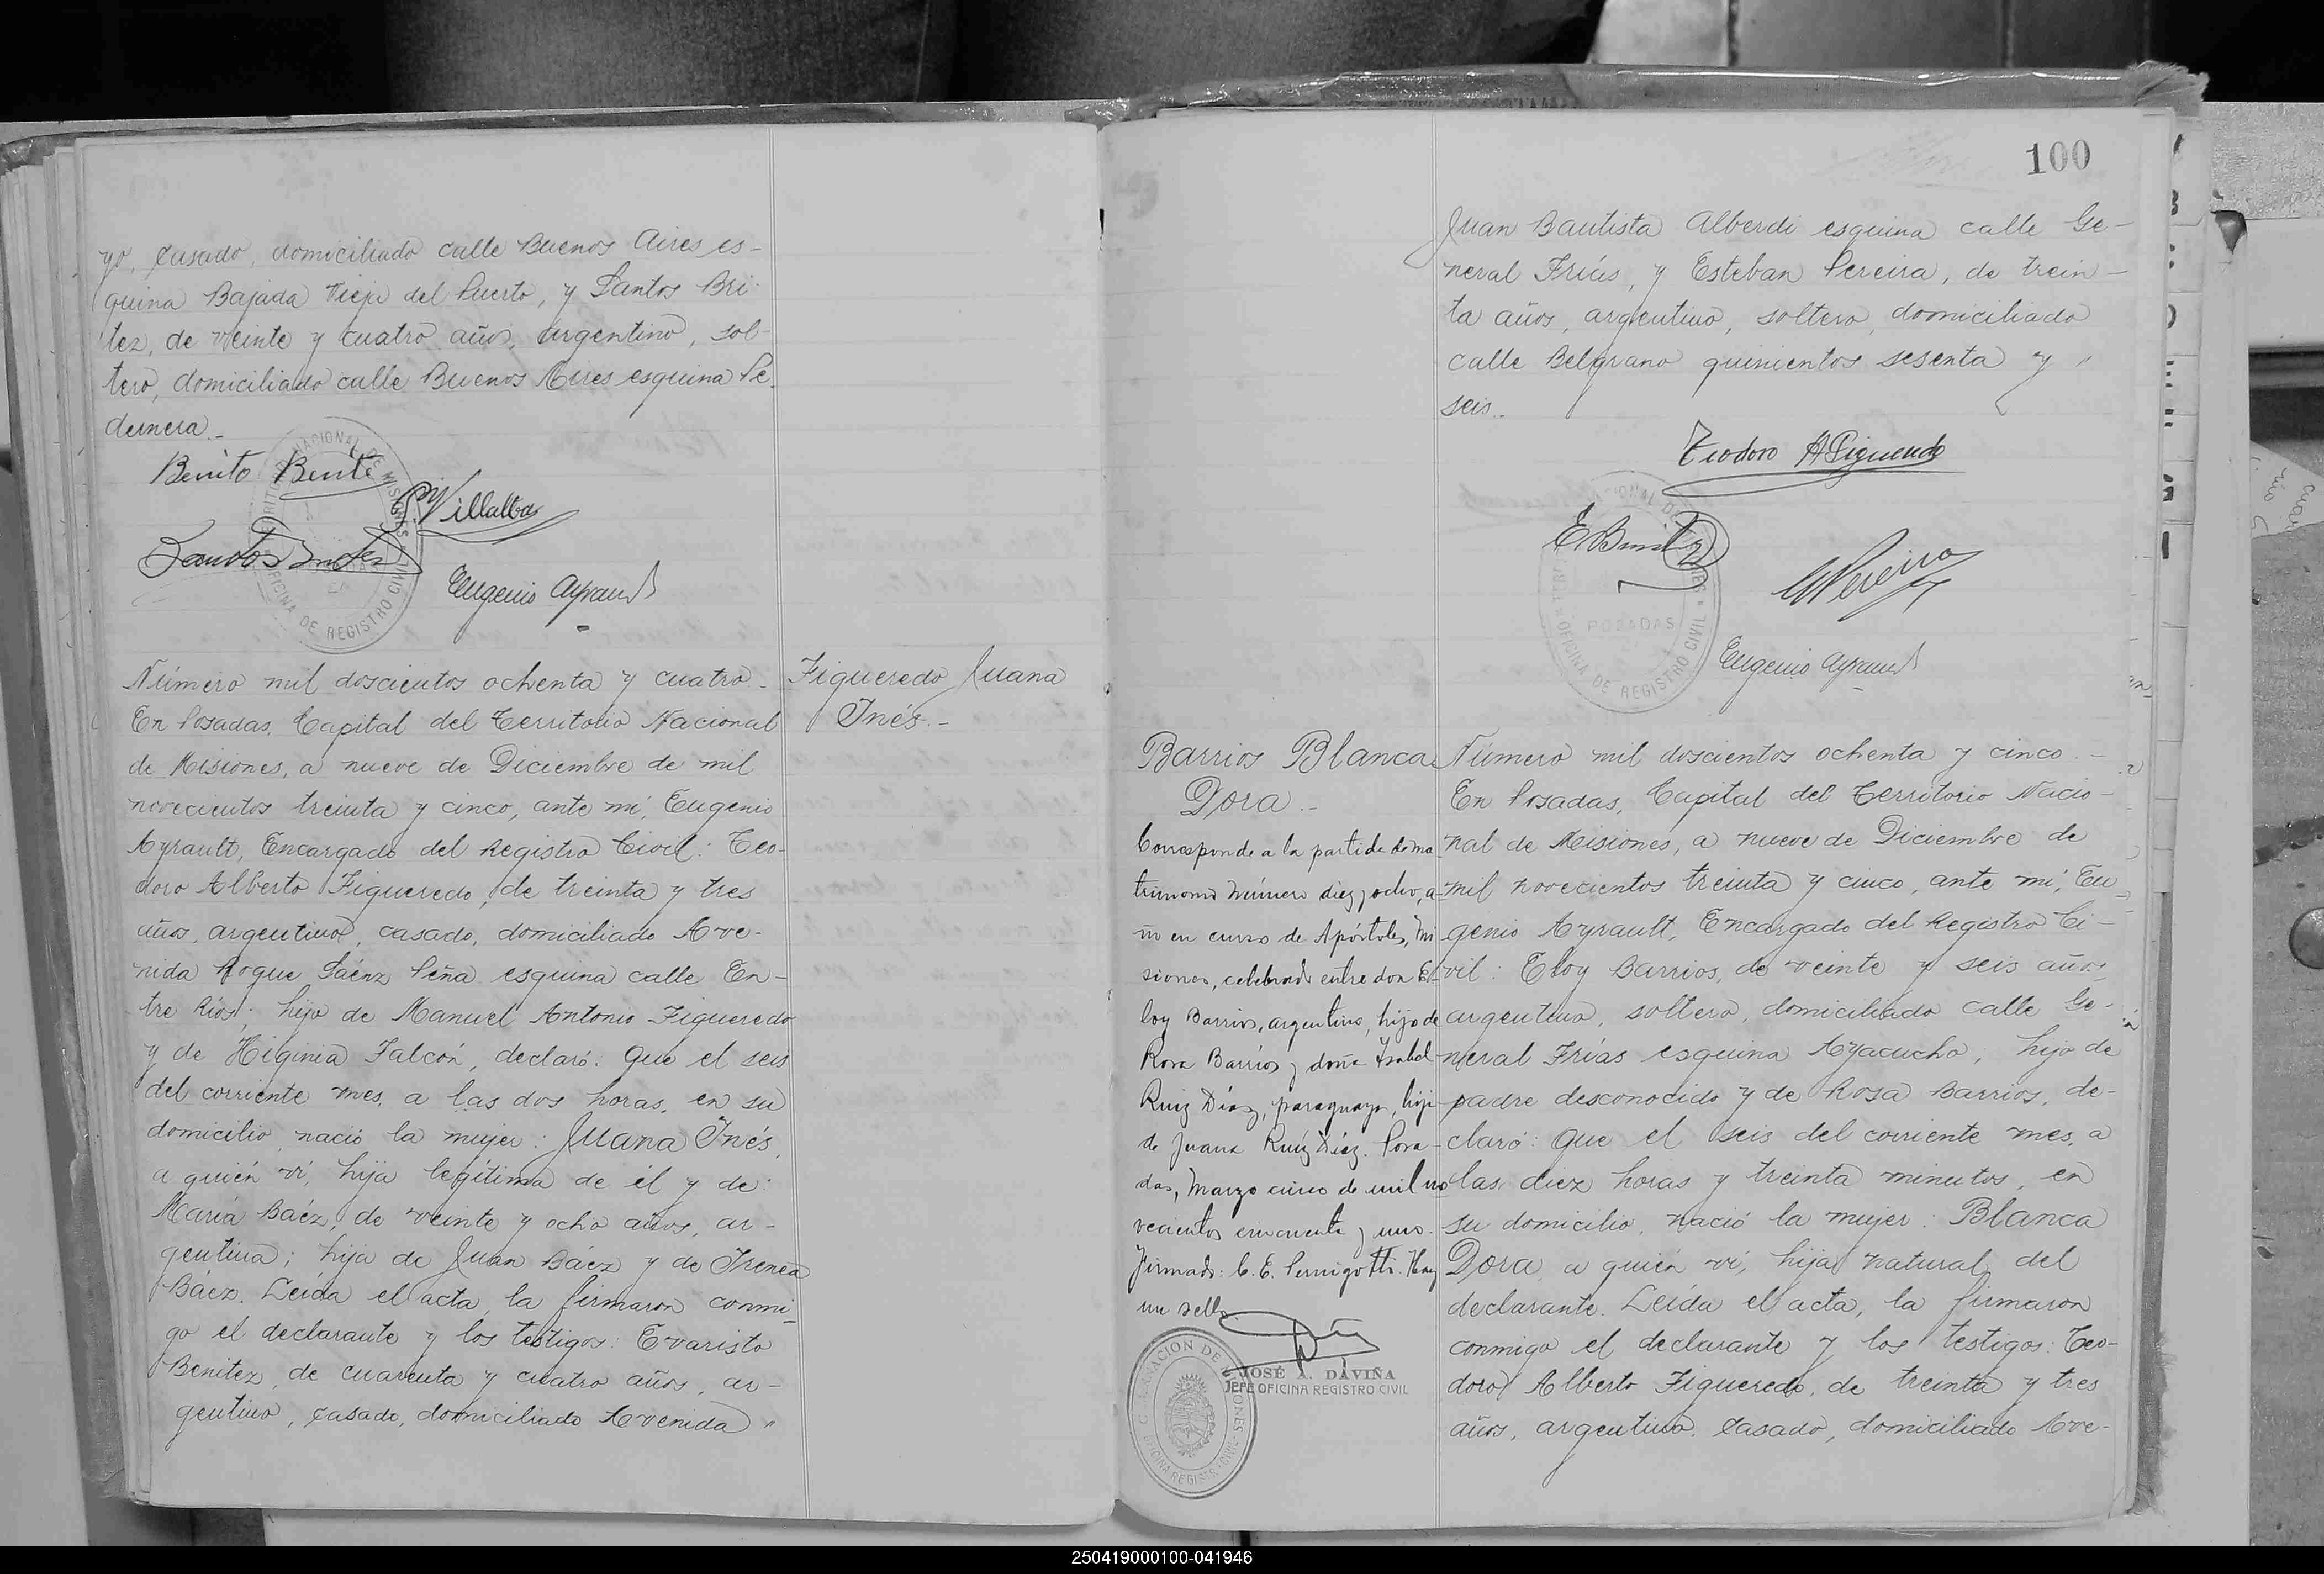 yo, casado, domiciliado calle Buenos Aires es-
quina Bajada Vieja del Puerto, y Santos Bri-
tez, de veinte y cuatro años, argentino, sol-
tero, domiciliado calle Buenos Aires esquina Pe-
dernera.-
Benito
P. Villalba
Santos Britez
Eugenio Ayrault
TERRITORIO NACIONAL DE MISIONES
OFICINA DE REGISTRO CIVIL
Número mil doscientos ochenta y cuatro.-
En Posadas, Capital del Territorio Nacional
de Misiones, a nueve de Diciembre de mil
novecientos treinta y cinco, ante mí, Eugenio
Ayrault, Encargado del Registro Civil: Teo-
doro Alberto Figueredo, de treinta y tres
años, argentino, casado, domiciliado Ave-
nida Roque Sáenz Peña esquina calle En-
tre Ríos; hijo de Manuel Antonio Figueredo
y de Higinia Falcón, declaró: Que el seis
del corriente mes, a las dos horas, en su
domicilio, nació la mujer: Juana Inés,
a quién ví, hija legítima de él y de:
María Báez, de veinte y ocho años, ar-
gentina; hija de Juan Báez y de Irenea
Báez. Leída el acta, la firmaron conmi-
go el declarante y los testigos: Evaristo
Benitez, de cuarenta y cuatro años, ar-
gentino, casado, domiciliado Avenida "
Figueredo Juana
Inés.-
100
Juan Bautista Alberdi esquina calle Ge-
neral Frías, y Esteban Pereira, de trein-
ta años, argentino, soltero, domiciliado
calle Belgrano quinientos sesenta y "
seis.-
Teodoro A Figueredo
E Benitez
E Pereira
Eugenio Ayrault
POSADAS
OFICINA DE REGISTRO CIVIL
Barrios Blanca
Dora.-
Corresponde a la partida de ma-
trimonio número diez y ocho, a-
ño en curso de Apóstoles, Mi
siones, celebrado entre don E-
loy Barrios, argentino, hijo de
Rosa Barrios y doña Isabel
Ruiz Díaz, paraguaya, hija
de Juana Ruíz Díaz. Posa-
das, Marzo cinco de mil no
vecientos cincuenta y uno.
Firmado: C. E. Pernigotti. Hay
un sello
JOSÉ A. DAVIÑA
JEFE OFICINA REGISTRO CIVIL
GOBERNACION DE MISIONES
OFICINA REGISTRO CIVIL
Número mil doscientos ochenta y cinco.-
En Posadas, Capital del Territorio Nacio-
nal de Misiones, a nueve de Diciembre de
mil novecientos treinta y cinco, ante mí, Eu-
genio Ayrault, Encargado del Registro Ci-
vil: Eloy Barrios, de veinte y seis años,
argentino, soltero, domiciliado calle Ge-
neral Frías esquina Ayacucho; hijo de
padre desconocido y de Rosa Barrios, de-
claró: Que el seis del corriente mes, a
las diez horas y treinta minutos, en
su domicilio, nació la mujer: Blanca
Dora, a quién ví, hija natural del
declarante. Leída el acta, la firmaron
conmigo el declarante y los testigos: Teo-
doro Alberto Figueredo, de treinta y tres
años, argentino, casado, domiciliado Ave-
250419000100-041946